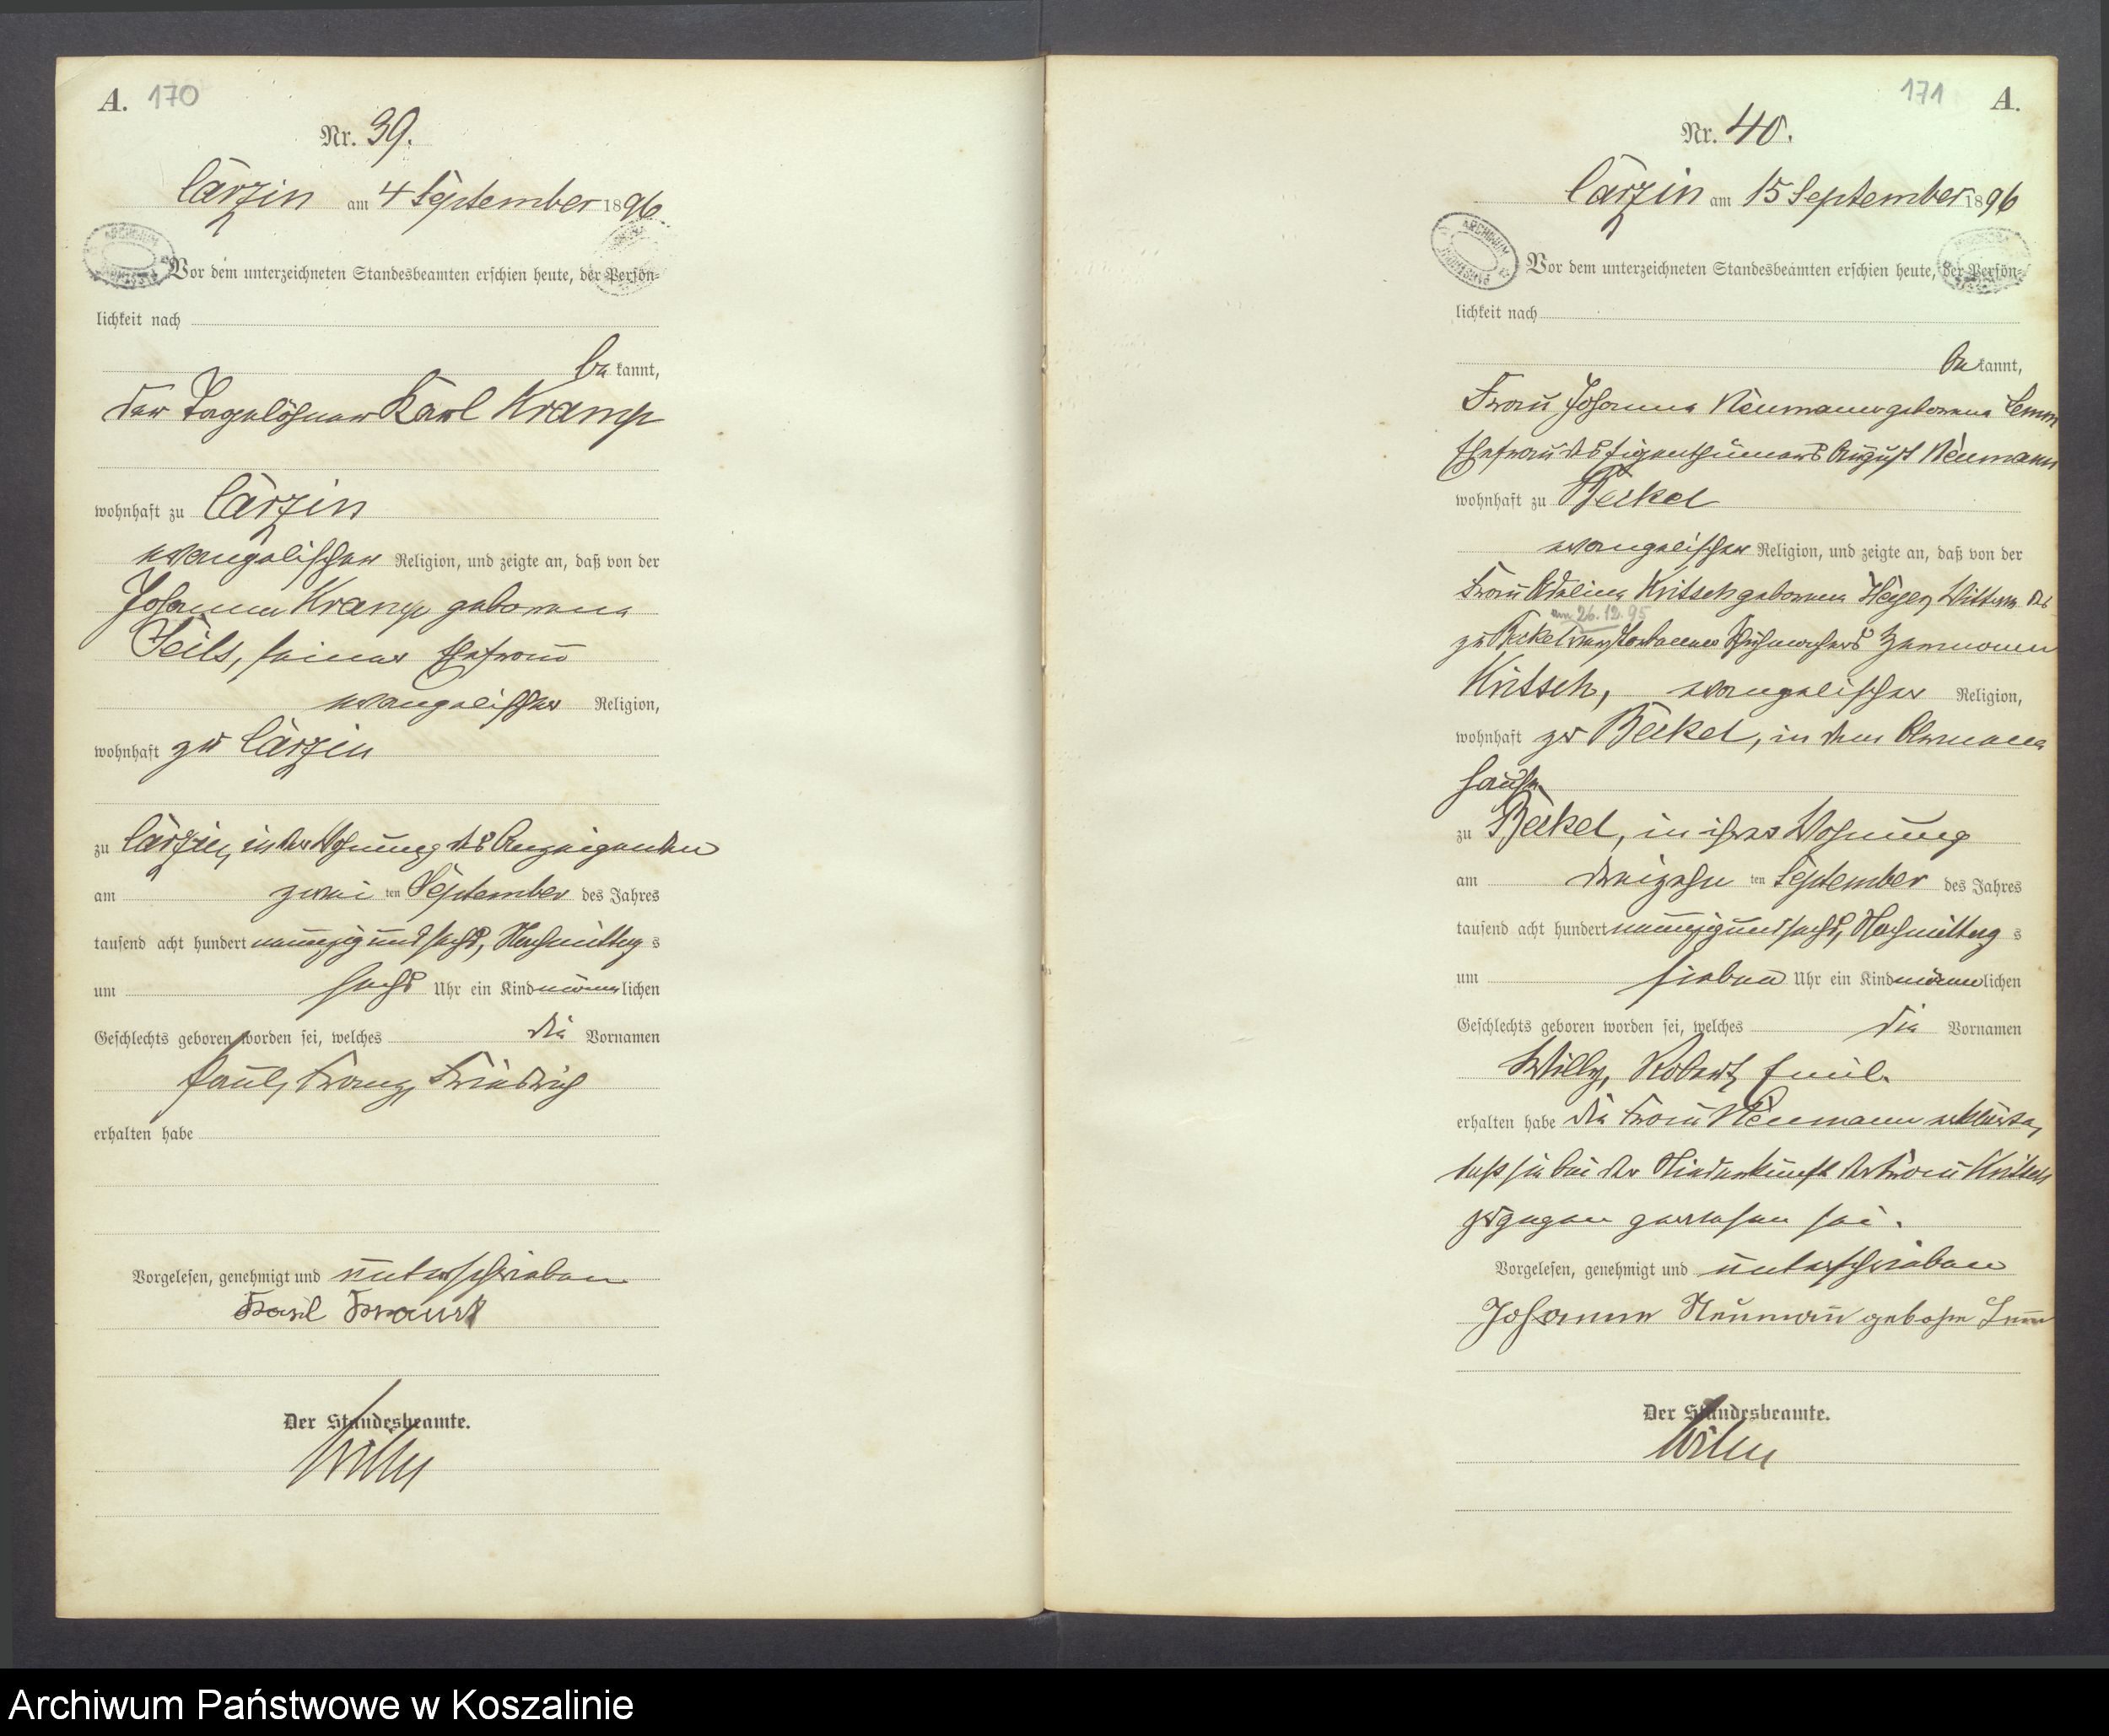 A. 170
Nr. 39.
Carzin am 4 September 1896
Vor dem unterzeichneten Standesbeamten erschien heute, der Persön-
lichkeit nach
bekannt,
der Tagelöhner Karl Kramp
wohnhaft zu Carzin
evangelischer Religion, und zeigte an, daß von der
Johanna Kramp geborene
Feils, seiner Ehefrau
evangelischer Religion,
wohnhaft zu Carzin
zu Carzin, in der Wohnung des Anzeigenden
am zweiten September des Jahres
tausend acht hundert neunzig und sechs, Nachmittags
um sechs Uhr ein Kind männlichen
Geschlechts geboren worden sei, welches die Vornamen
Paul, Franz, Friedrich
erhalten habe
Vorgelesen, genehmigt und unterschrieben
Karl
Der Standesbeamte.
171 A.
Nr. 40.
Carzin am 15 September 1896
Vor dem unterzeichneten Standesbeamten erschien heute, der Persön-
lichkeit nach
bekannt,
Frau Johanna Neumann geborene Lemm
Ehefrau des Eigenthümers August Neumann
wohnhaft zu Beckel
evangelischer Religion, und zeigte an, daß von der
Frau Adeline Kritsch geborene Heyer, Wittwe des
am 26.12.95
zu Beckel verstorbenen Schuhmachers Hermann
Kritsch, evangelischer Religion,
wohnhaft zu Beckel, in dem Armen
hause
zu Beckel, in ihrer Wohnung
am dreizehnten September des Jahres
tausend acht hundert neunzig und sechs, Nachmittags
um sieben Uhr ein Kind männlichen
Geschlechts geboren worden sei, welches die Vornamen
Willy, Robert, Emil.
erhalten habe die Frau Neumann erklärte,
daß sie bei der Niederkunft der Frau Kritsch
zugegen gewesen sei.
Vorgelesen, genehmigt und unterschrieben
Johanne Neumann geborne Lemm
Der Standesbeamte.
Archiwum Państwowe w Koszalinie